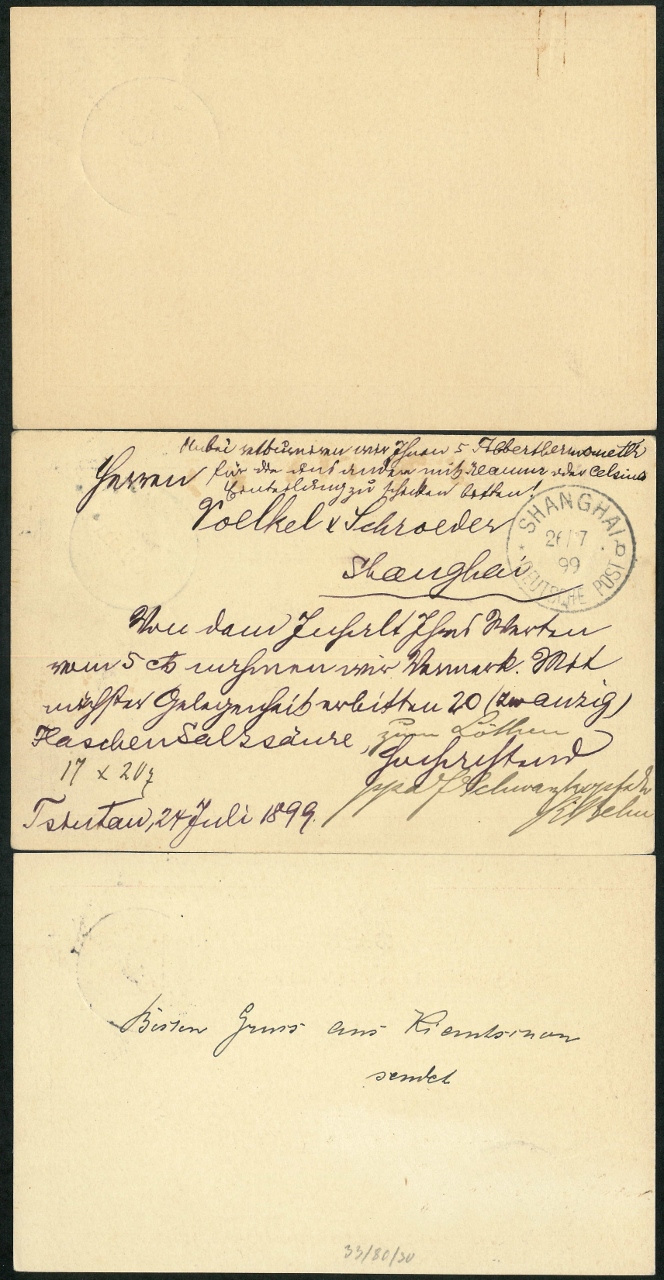 Anbei retourniren wir Ihnen 5
für die andern mit Reaumur oder Celsius
Eintheilung zu schicken bitten!
Herren
Voelkel & Schroeder
Shanghai
SHANGHAI
26/7
99
DEUTSCHE POST
Von dem Inhalt Ihres Werten
vom 5 ct nahmen wir Vermerk. Mit
nächster Gelegenheit erbitten 20 (zwanzig)
Flaschen Salzsäure, zum Löthen
Hochachtend
17 x 20
ppa F Schwarzkopf & Co
Tsintau, 24 Juli 1899.
Besten Gruss aus Kiautschou
sendet
33/80/30